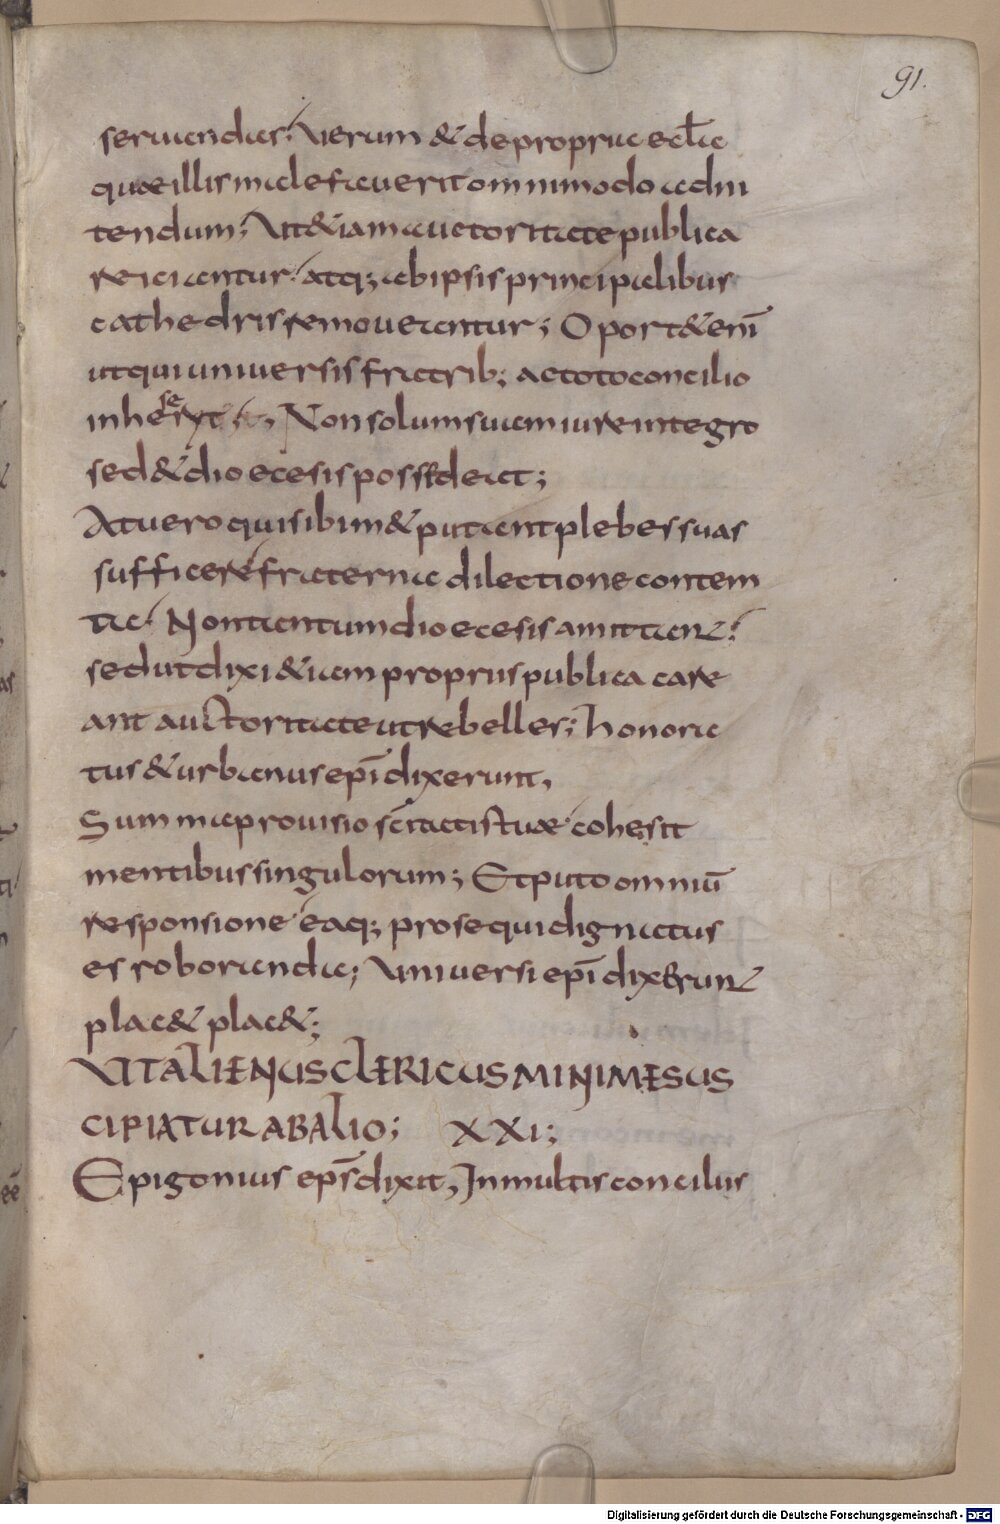 91.
seruiendas; Uerum & de propria ecl̄a
quae illis male fauerit omnimodo adni
tendum; Ut & iam auctoritate publica
reiciantur; atq; ab ipsis principalibus
cathedris remoueantur; Oport& enī
ut qui uniuersis fratrib; ac toto concilio
inheserit; Non solum suam iure integro
sed & dioecesis possedeat;
At uero qui sibi im& putant plebes suas
sufficere fraterna dilectione contem
ta; Non tantum dioecesis amittant;
sed ut dixi &iam propriis publica care
ant auctoritate ut rebelles; honora
tus & urbanus epī dixerunt,
Summa prouisio sc̄itatis tuae cohesit
mentibus singulorum; Et puto omniū
responsione eaq; prosequi dignatus
es roboranda; Uniuersi epī dixerunt
plac& plac&;
UT ALIENUS CLERICUS MINIME SUS
CIPIATUR AB ALIO; XXI;
Epigonius epīs dixit, In multis conciliis
Digitalisierung gefördert durch die Deutsche Forschungsgemeinschaft - DFG